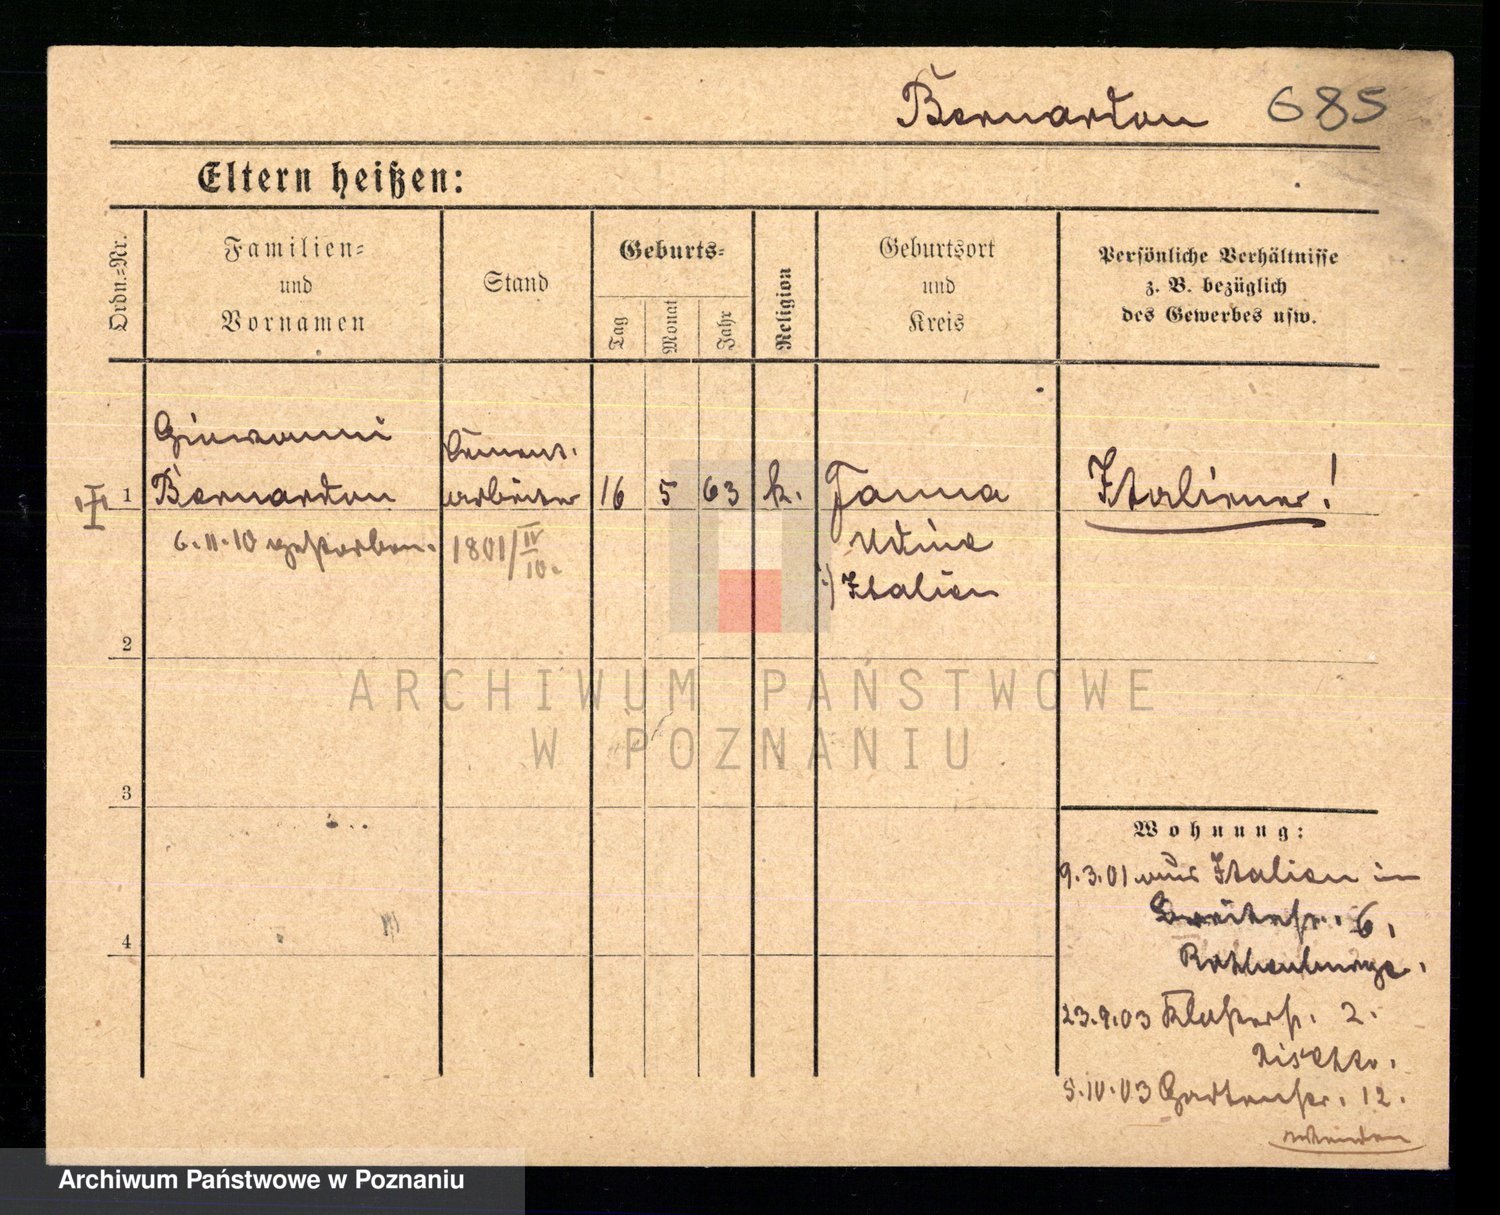 Bernardon 685
Eltern heißen:
Ordn.=Nr.
Familien=
und
Vornamen
Stand
Geburts=
Tag
Monat
Jahr
Religion
Geburtsort
und
Kreis
Persönliche Verhältnisse
z. B. bezüglich
des Gewerbes usw.
Giovanni
Bernardon
6.11.10 gestorben.
Cement-
arbeiter
1801/IV
10.
16 5 63 k.
Fanna
Udine
Italien
Italiener!
1
2
3
4
ARCHIWUM PAŃSTWOWE
W POZNANIU
Wohnung:
9.3.01 aus Italien in
Breitestr. 6.
23.9.03 Klosterstr. 2.
5.10.03 Gartenstr. 12.
Archiwum Państwowe w Poznaniu